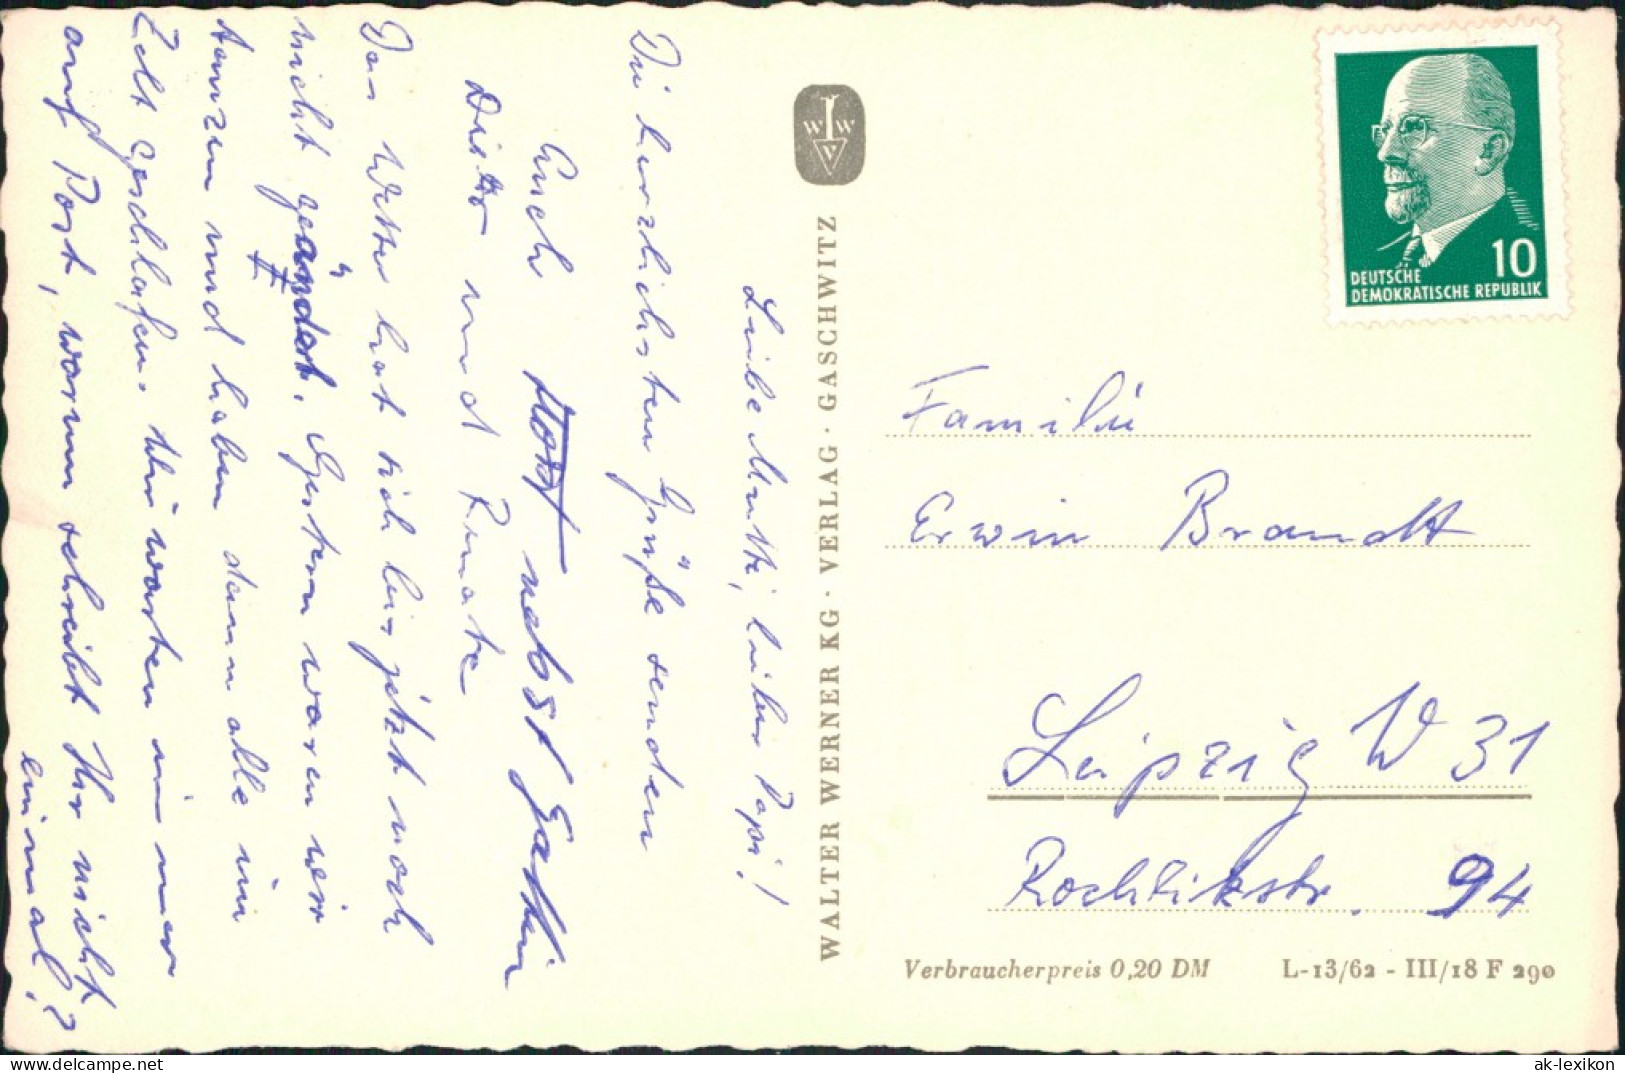 Liebe Mutti, lieber Papi!
Die herzlichsten Grüße senden
Euch Horst nebst Gattin
Dieter und Renate
Das Wetter hat sich bis jetzt noch
nicht geändert. Gestern waren wir
tanzen und haben dann alle im
Zelt geschlafen. Wir warten immer
auf Post, warum schreibt Ihr nicht
einmal?
WALTER WERNER KG · VERLAG · GASCHWITZ
W W
V
10
DEUTSCHE
DEMOKRATISCHE REPUBLIK
Familie
Erwin Brandt
Leipzig W 31
Rochlitzstr. 94
Verbraucherpreis 0,20 DM L-13/62 - III/18 F 290
ak-lexikon